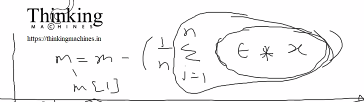 Thinking
MACHINES
https://thinkingmachines.in
m = m - ( 1/n n Σ i=1 ( ϵ * x ) )
m[1]